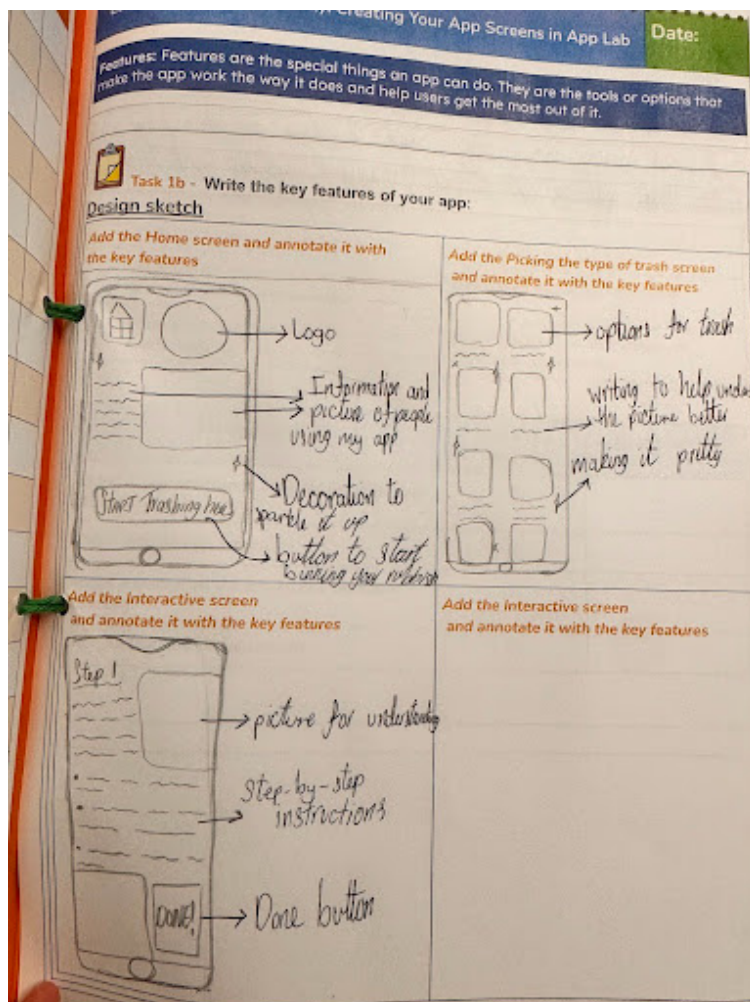 Creating Your App Screens in App Lab
Date:
Features: Features are the special things an app can do. They are the tools or options that
make the app work the way it does and help users get the most out of it.
Task 1b - Write the key features of your app:
Design sketch
Add the Home screen and annotate it with
the key features
Logo
Information and
picture of people
using my app
Decoration to
sparkle it up
START Trashing here
button to start
binning your rubbish
Add the Picking the type of trash screen
and annotate it with the key features
options for trash
writing to help unde
the picture better
making it pretty
Add the Interactive screen
and annotate it with the key features
Step 1
picture for understanding
Step-by-step
instructions
DONE!
Done button
Add the Interactive screen
and annotate it with the key features